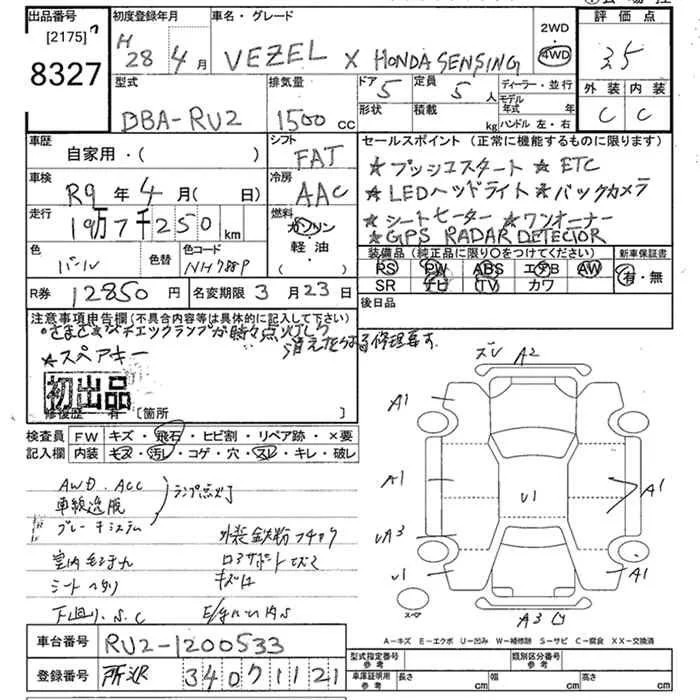 出品番号 初度登録年月 車名・グレード 2WD 評価点
[2175]
8327
H28年4月 VEZEL X HONDA SENSING 4WD 3.5
型式 排気量 ドア 定員 ディーラー・並行 外装 内装
DBA-RU2 1500cc 5 5人 モデル年式 年 C C
形状 積載 kg ハンドル 左・右
車歴 シフト セールスポイント (正常に機能するものに限ります)
自家用・( ) FAT ★プッシュスタート ★ETC
車検 冷房 ★LEDヘッドライト ★バックカメラ
R9年4月(日) AAC ★シートヒーター ★ワンオーナー
走行 燃料 ★GPS RADAR DETECTOR
19万7千250km ガソリン 装備品 (純正品に限り○をつけてください) 新車保証書
色 色替 色コード 軽油・ PS PW ABS エアB AW 有・無
パール NH788P ( ) SR ナビ TV カワ
R券 12850円 名変期限 3月23日 後日品
注意事項申告欄(不具合内容等は具体的に記入して下さい)
・さまざまなチェックランプが時々点灯したり
消えたりする 修理要す
★スペアキー
初出品
修復歴 有 [箇所 ]
検査員 FW キズ・飛石・ヒビ割・リペア跡・×要
記入欄 内装 キズ・汚レ・コゲ・穴・スレ・キレ・破レ
AWD. ACC
車線逸脱 ランプ点灯
ブレーキシステム
外装鉄粉
室内
シート
キズ
下回り.S.C
A2
A1
A1 A1
U1
UA3
U1 A1
A3
A-キズ E-エクボ U-凹み W-補修跡 S-サビ C-腐食 XX-交換済
車台番号 RU2-1200533
型式指定番号 参考 類別区分番号 参考
登録番号 所沢 340 1121
車庫証明用 参考 長さ cm 幅 cm 高さ cm